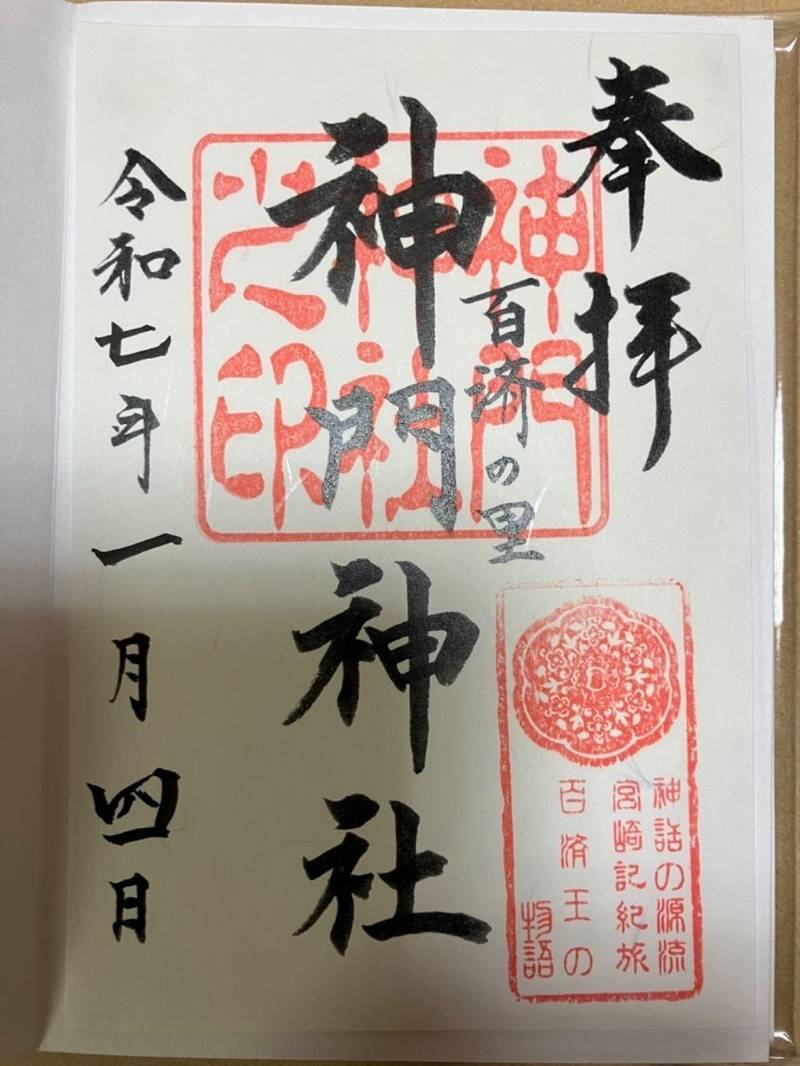 奉拝
百済の里
神門神社
令和七年一月四日
神門
神社
之印
神話の源流
宮崎記紀旅
百済王の
物語